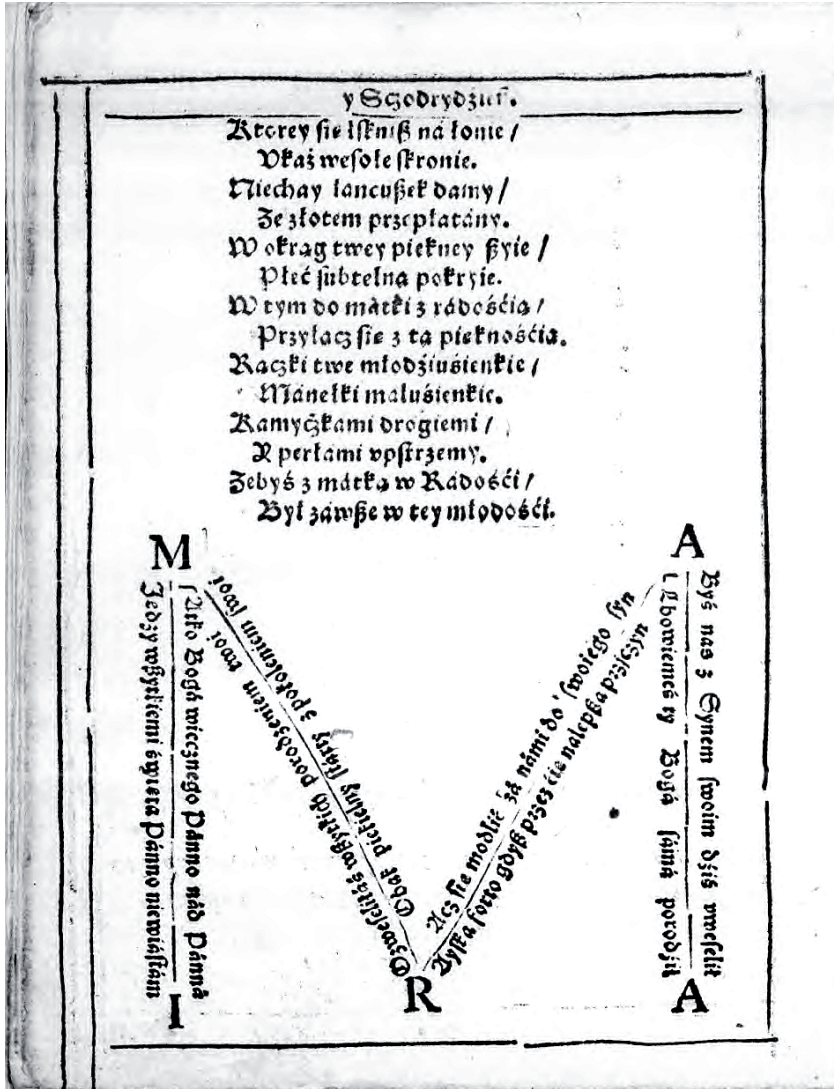 y Sczodrydzień.
Ktorey sie łskniß ná łonie /
Vkaż wesołe skronie.
Niechay łancußek damy /
Ze złotem przepłatány.
W okrąg twey piekney ßyie /
Płeć subtelną pokryie.
W tym do mátki z rádośćią /
Przyłącz sie z tą pieknośćią.
Rączki twe młodźiuśienkie /
Mánełki maluśienkie.
Kamyczkami drogiemi /
Y perłami vpstrzemy.
Zebyś z mátką w Rádośći /
Był záwße w tey młodośći.
M
A
Jedzy wßytkiemi święta Pánno niewiástám
Atko Bogá wiecznego Pánno nád Pánná
Ozweseliłáś wßytkich porodzeniem twoi
Chat piekielny stárty z pokoleniem swoi
Acz sie modlić zá námi do swoiego syn
Ayska forto gdyß przez cie nalepßa przyczyn
Lbowiemeś ty Bogá sámá porodził
Byś nas z Synem swoim dziś vweselił
I
R
A